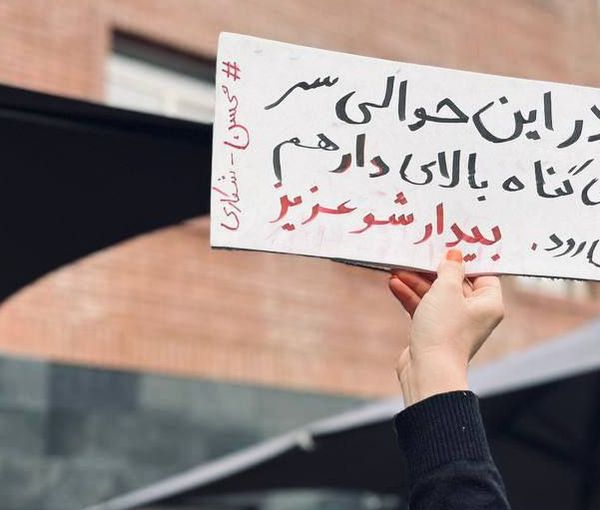 در این حوالی سر
گناه بالای دار هم
رود. بیدار شو عزیز
#محسن-شکاری